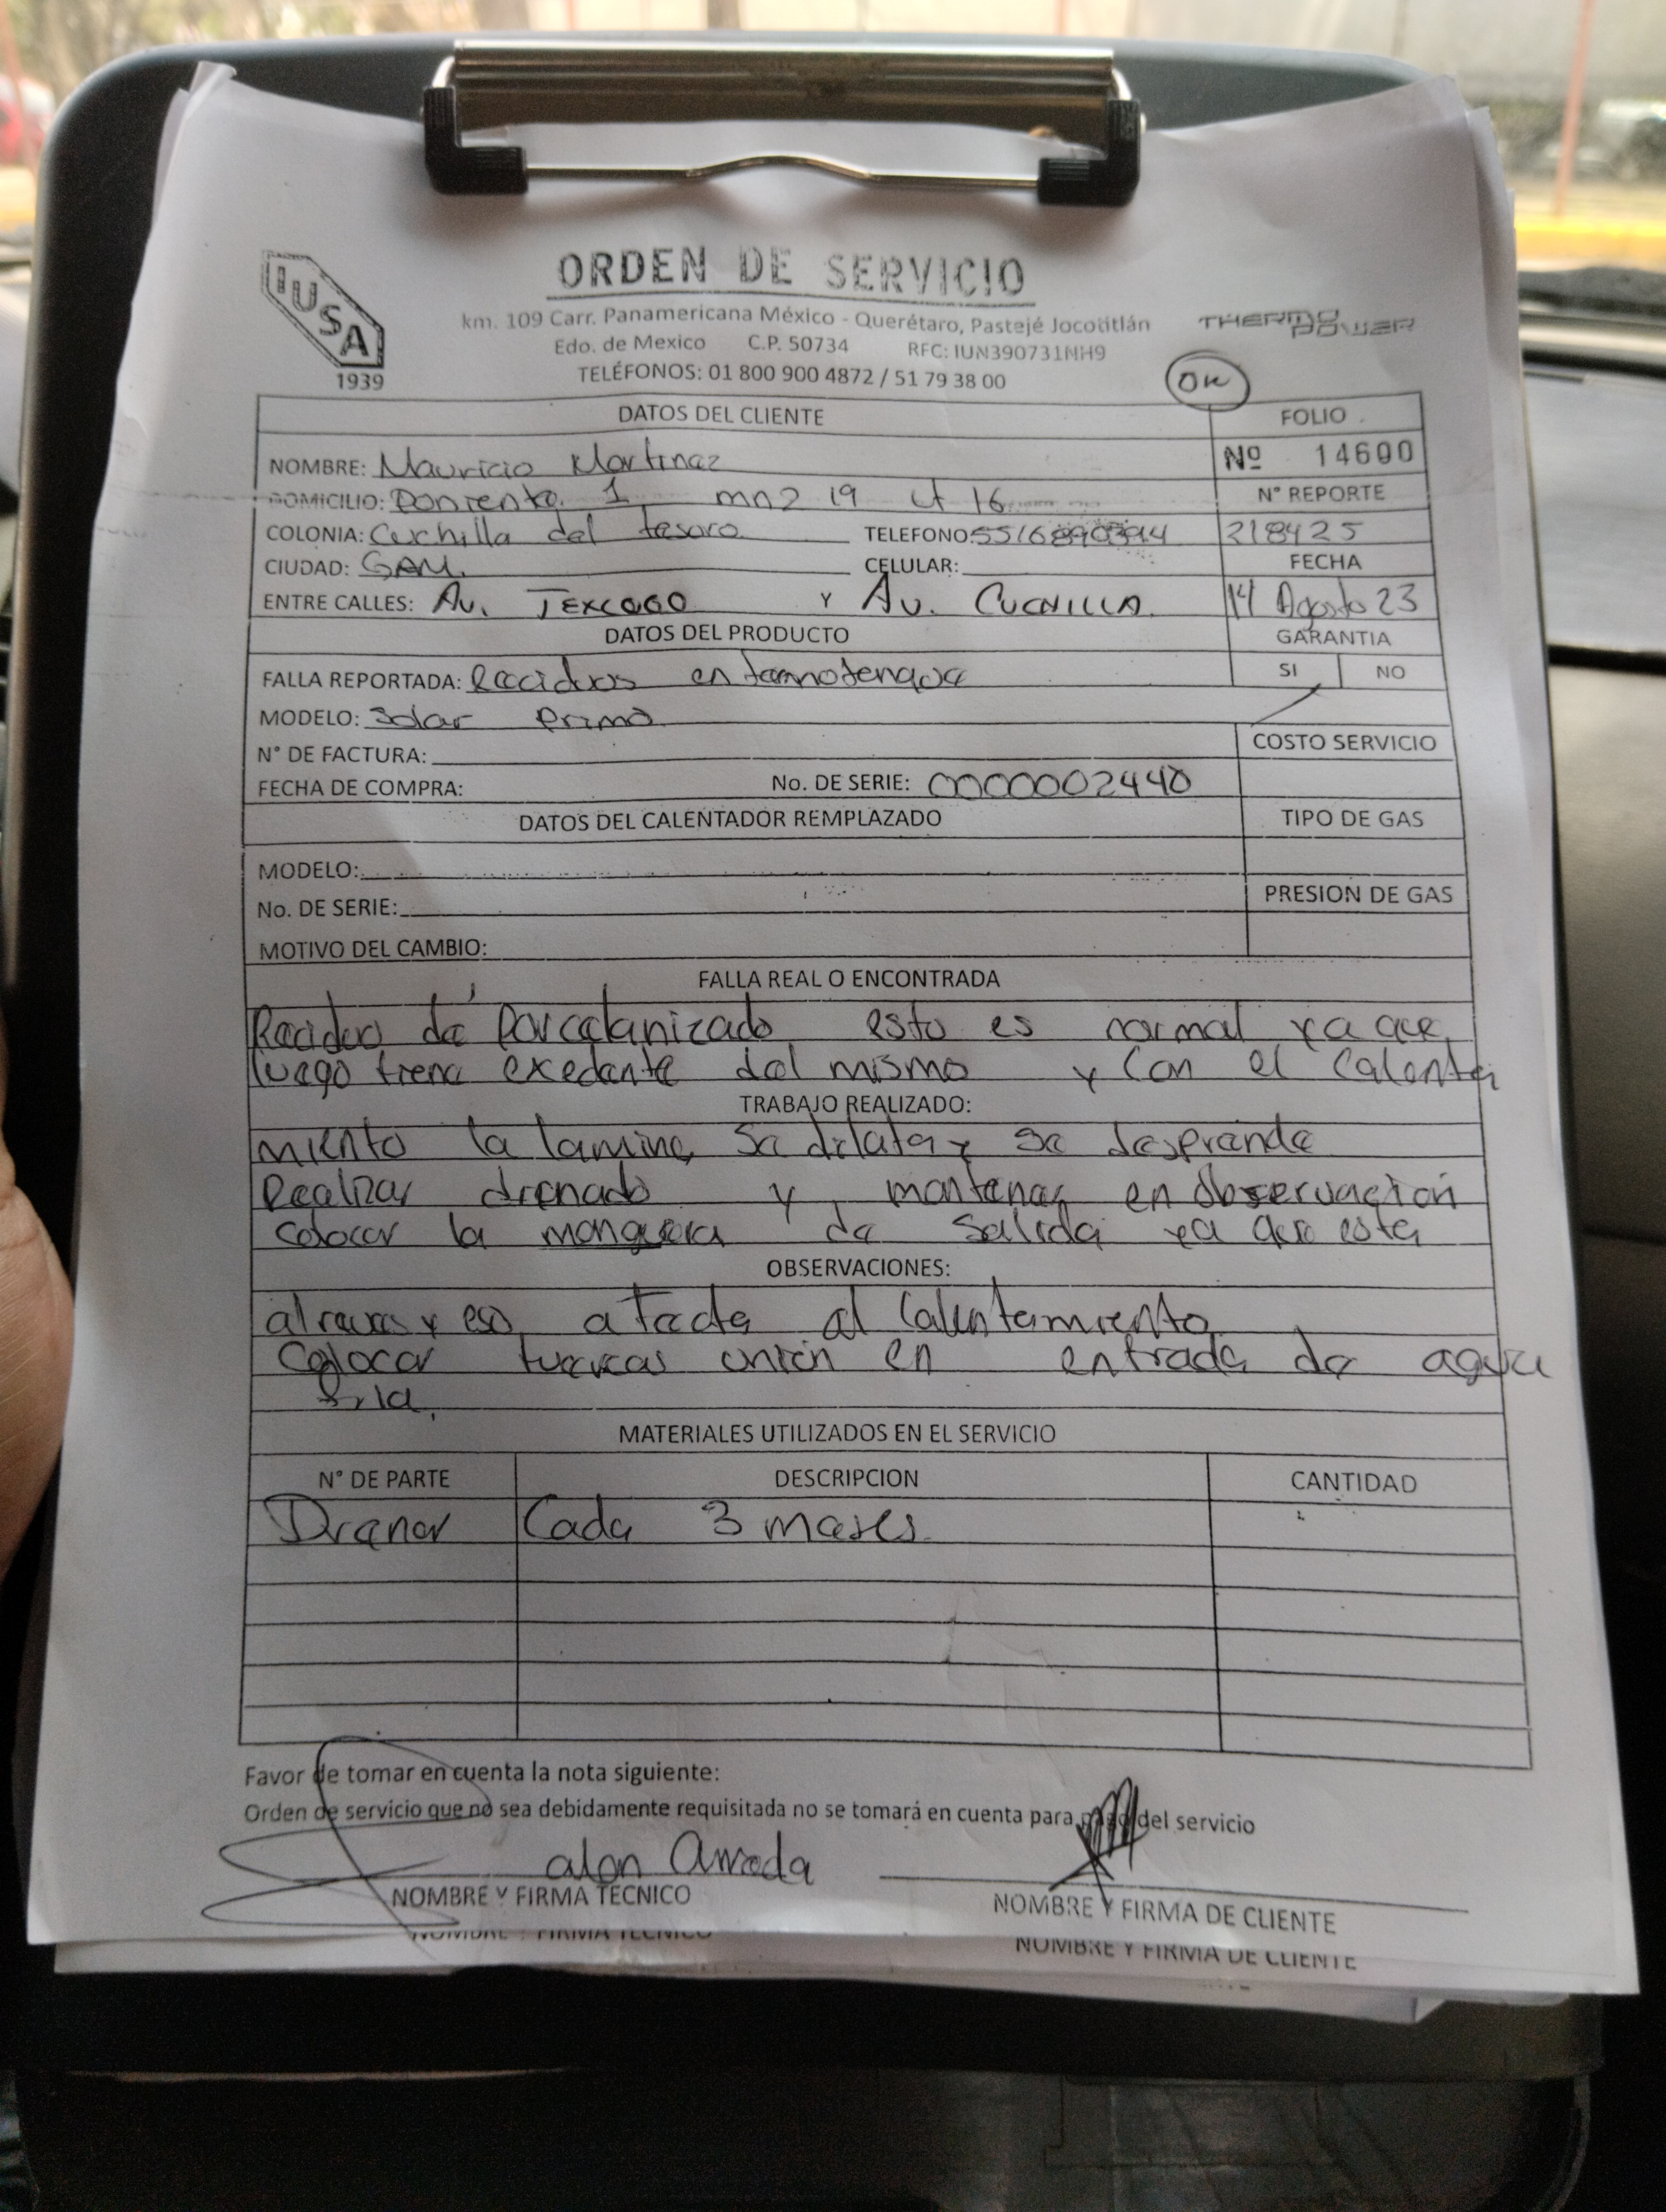 IUSA
1939
ORDEN DE SERVICIO
km. 109 Carr. Panamericana México - Querétaro, Pastejé Jocotitlán
Edo. de Mexico C.P. 50734 RFC: IUN390731NH9
TELÉFONOS: 01 800 900 4872 / 51 79 38 00
THERMO POWER
OK
DATOS DEL CLIENTE FOLIO
NOMBRE: Mauricio Martinez Nº 14600
DOMICILIO: Poniente 1 mnz 19 Lt 16 N° REPORTE
COLONIA: Cuchilla del tesoro TELEFONO: 218425
CIUDAD: GAM. CELULAR: FECHA
ENTRE CALLES: Av. TEXCOCO Y Av. CUCHILLA 14 Agosto 23
DATOS DEL PRODUCTO GARANTIA
FALLA REPORTADA: Reciduos en termotanque SI NO
MODELO: Solar Primo
N° DE FACTURA: COSTO SERVICIO
FECHA DE COMPRA: No. DE SERIE: 0000002440
DATOS DEL CALENTADOR REMPLAZADO TIPO DE GAS
MODELO:
No. DE SERIE: PRESION DE GAS
MOTIVO DEL CAMBIO:
FALLA REAL O ENCONTRADA
Reciduo de Porcelanizado esto es normal ya que
luego tiene exedente del mismo y Con el Calenta
TRABAJO REALIZADO:
miento la lamina se dilata y se desprende
Realizar drenado y mantener en observación
Colocar la manguera de salida ya que esta
OBSERVACIONES:
al reves y eso afecta al Calentamiento
Colocar tuercas unión en entrada de agua
fria.
MATERIALES UTILIZADOS EN EL SERVICIO
N° DE PARTE DESCRIPCION CANTIDAD
Drenar Cada 3 meses
Favor de tomar en cuenta la nota siguiente:
Orden de servicio que no sea debidamente requisitada no se tomará en cuenta para pago del servicio
NOMBRE Y FIRMA TECNICO NOMBRE Y FIRMA DE CLIENTE
NOMBRE Y FIRMA TECNICO NOMBRE Y FIRMA DE CLIENTE